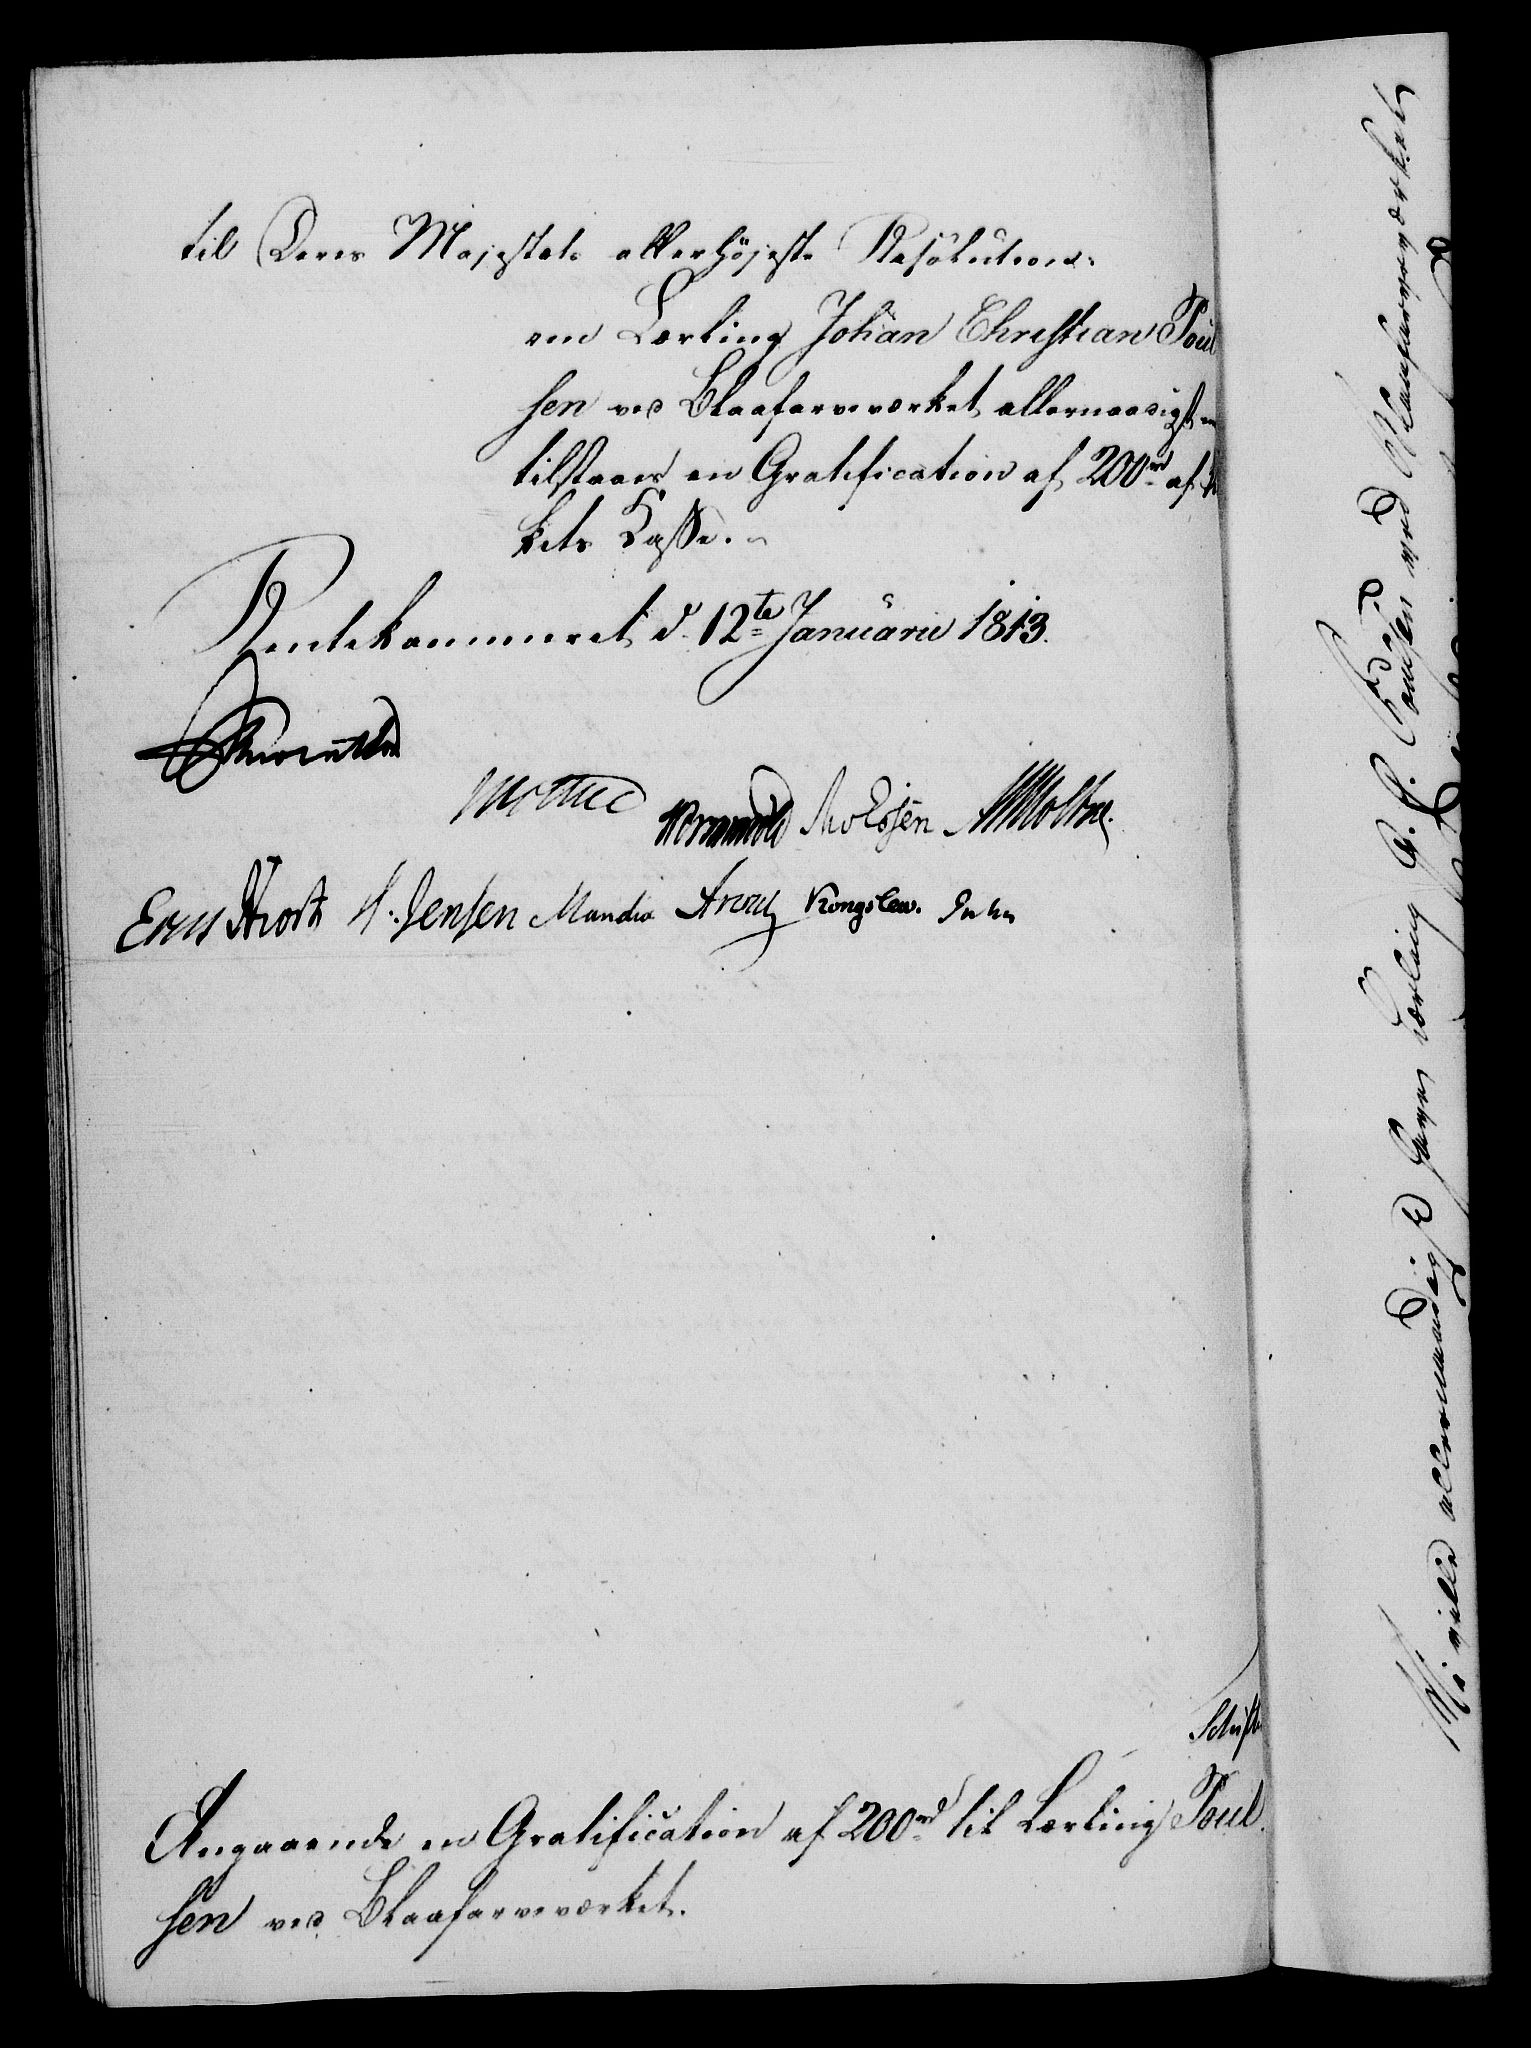 til Deres Majestæts allerhöjeste Resolution:
om Lærling Johan Christian Poul
sen ved Blaafarveværket allernaadigst
tilstaaes en Gratification af 200 rd af
kets Casse.
Rentekammeret d. 12te Januarii 1813.
Mölsted Wormskiold Molbsen Moltke.
Ernst Hiorth H. Jensen Mandix Kongslew.
Schult
Angaaende en Gratification af 200 rd til Lærling Poul
sen ved Blaafarveværket.
Vi ville allernaadigst have Lærling J. C. Poulsen ved Blaafarveværket